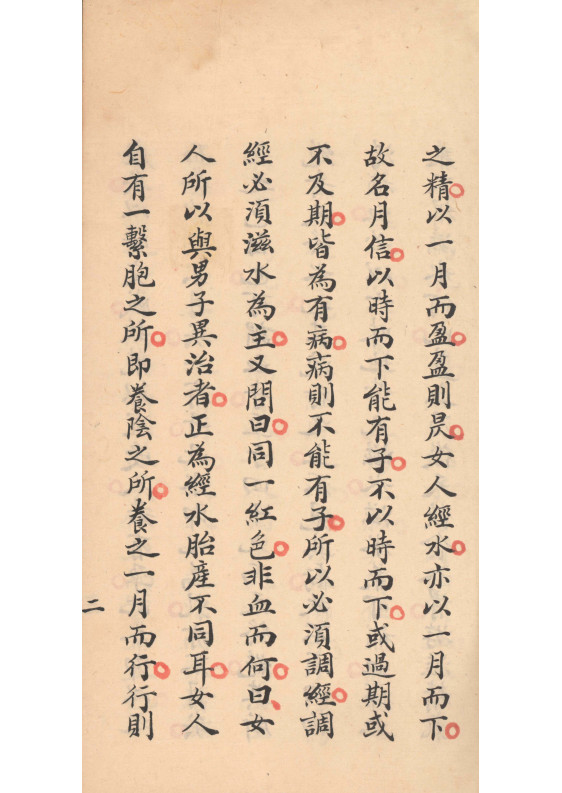 之精以一月而盈盈則昃女人經水亦以一月而下
故名月信以時而下能有子不以時而下或過期或
不及期皆為有病病則不能有子所以必須調經調
經必須滋水為主又問曰同一紅色非血而何曰女
人所以與男子異治者正為經水胎產不同耳女人
自有一繫胞之所即養陰之所養之一月而行行則
二